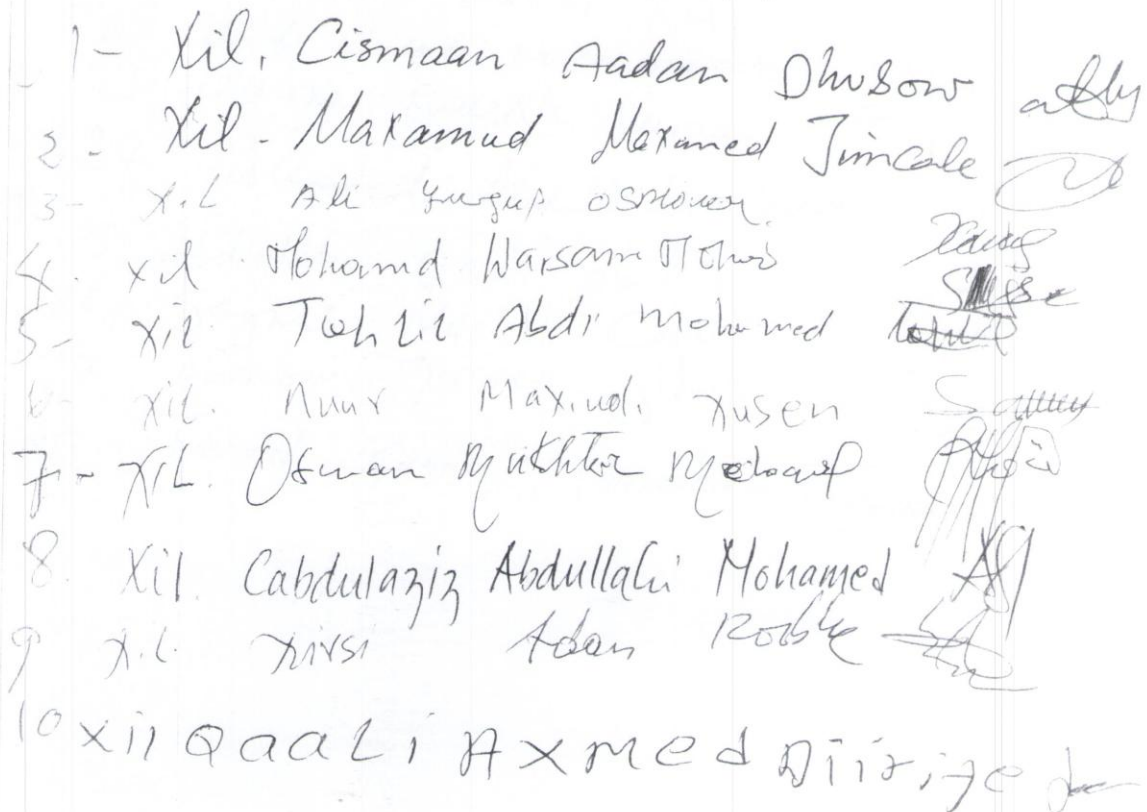 1- Xil. Cismaan Aadan Dhubow
2- Xil- Maxamud Maxamed Jimcale
3- X.L Ali Yusuf Osman
4- Xil Mohamd Warsame
5- Xil Tahlil Abdi Mohamed
6- Xil. Nuur Maxmud. Xusen
7- XiL. Osman Mukhtar
8. Xil. Cabdulaziz Abdullahi Mohamed
9 X.L. Xirsi Adan Roble
10 Xil Qaali Axmed Diiriye